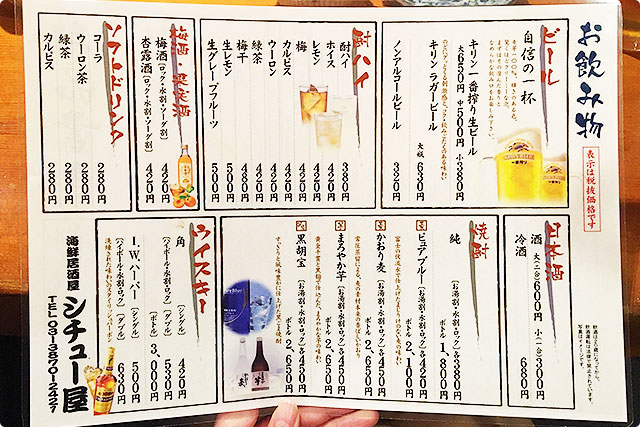 お飲み物
表示は税抜価格です
ビール
自信の一杯
キリン一番搾り生ビール
大650円 中500円 小380円
キリン ラガービール
大瓶 630円
ノンアルコールビール 320円
酎ハイ
酎ハイ 380円
ホイス 420円
レモン 420円
梅 420円
カルピス 420円
ウーロン 420円
緑茶 420円
梅干 420円
生レモン 500円
生グレープフルーツ 500円
梅酒・果実酒
梅酒【ロック・水割・ソーダ割】 420円
杏露酒【ロック・水割・ソーダ割】 420円
ソフトドリンク
コーラ 280円
ウーロン茶 280円
緑茶 280円
カルピス 280円
日本酒
酒 大(二合)600円 小(一合)300円
冷酒 680円
飲酒は20歳になってから。
飲酒運転は法律で禁止されています。
写真はイメージです。
焼酎
純 【お湯割・水割・ロック】各380円
ボトル 1,800円
ピュアブルー【お湯割・水割・ロック】各420円
ボトル 2,100円
かおり麦【お湯割・水割・ロック】各450円
ボトル 2,650円
まろやか芋【お湯割・水割・ロック】各450円
ボトル 2,650円
黒胡宝【お湯割・水割・ロック】各450円
ボトル 2,650円
ウイスキー
角 (シングル) 420円
【ハイボール・水割・ロック】(ダブル) 530円
(ボトル) 3,000円
I.W.ハーパー (シングル) 500円
【ハイボール・水割・ロック】(ダブル) 630円
海鮮居酒屋
シチュー屋
TEL 03-3870-2427